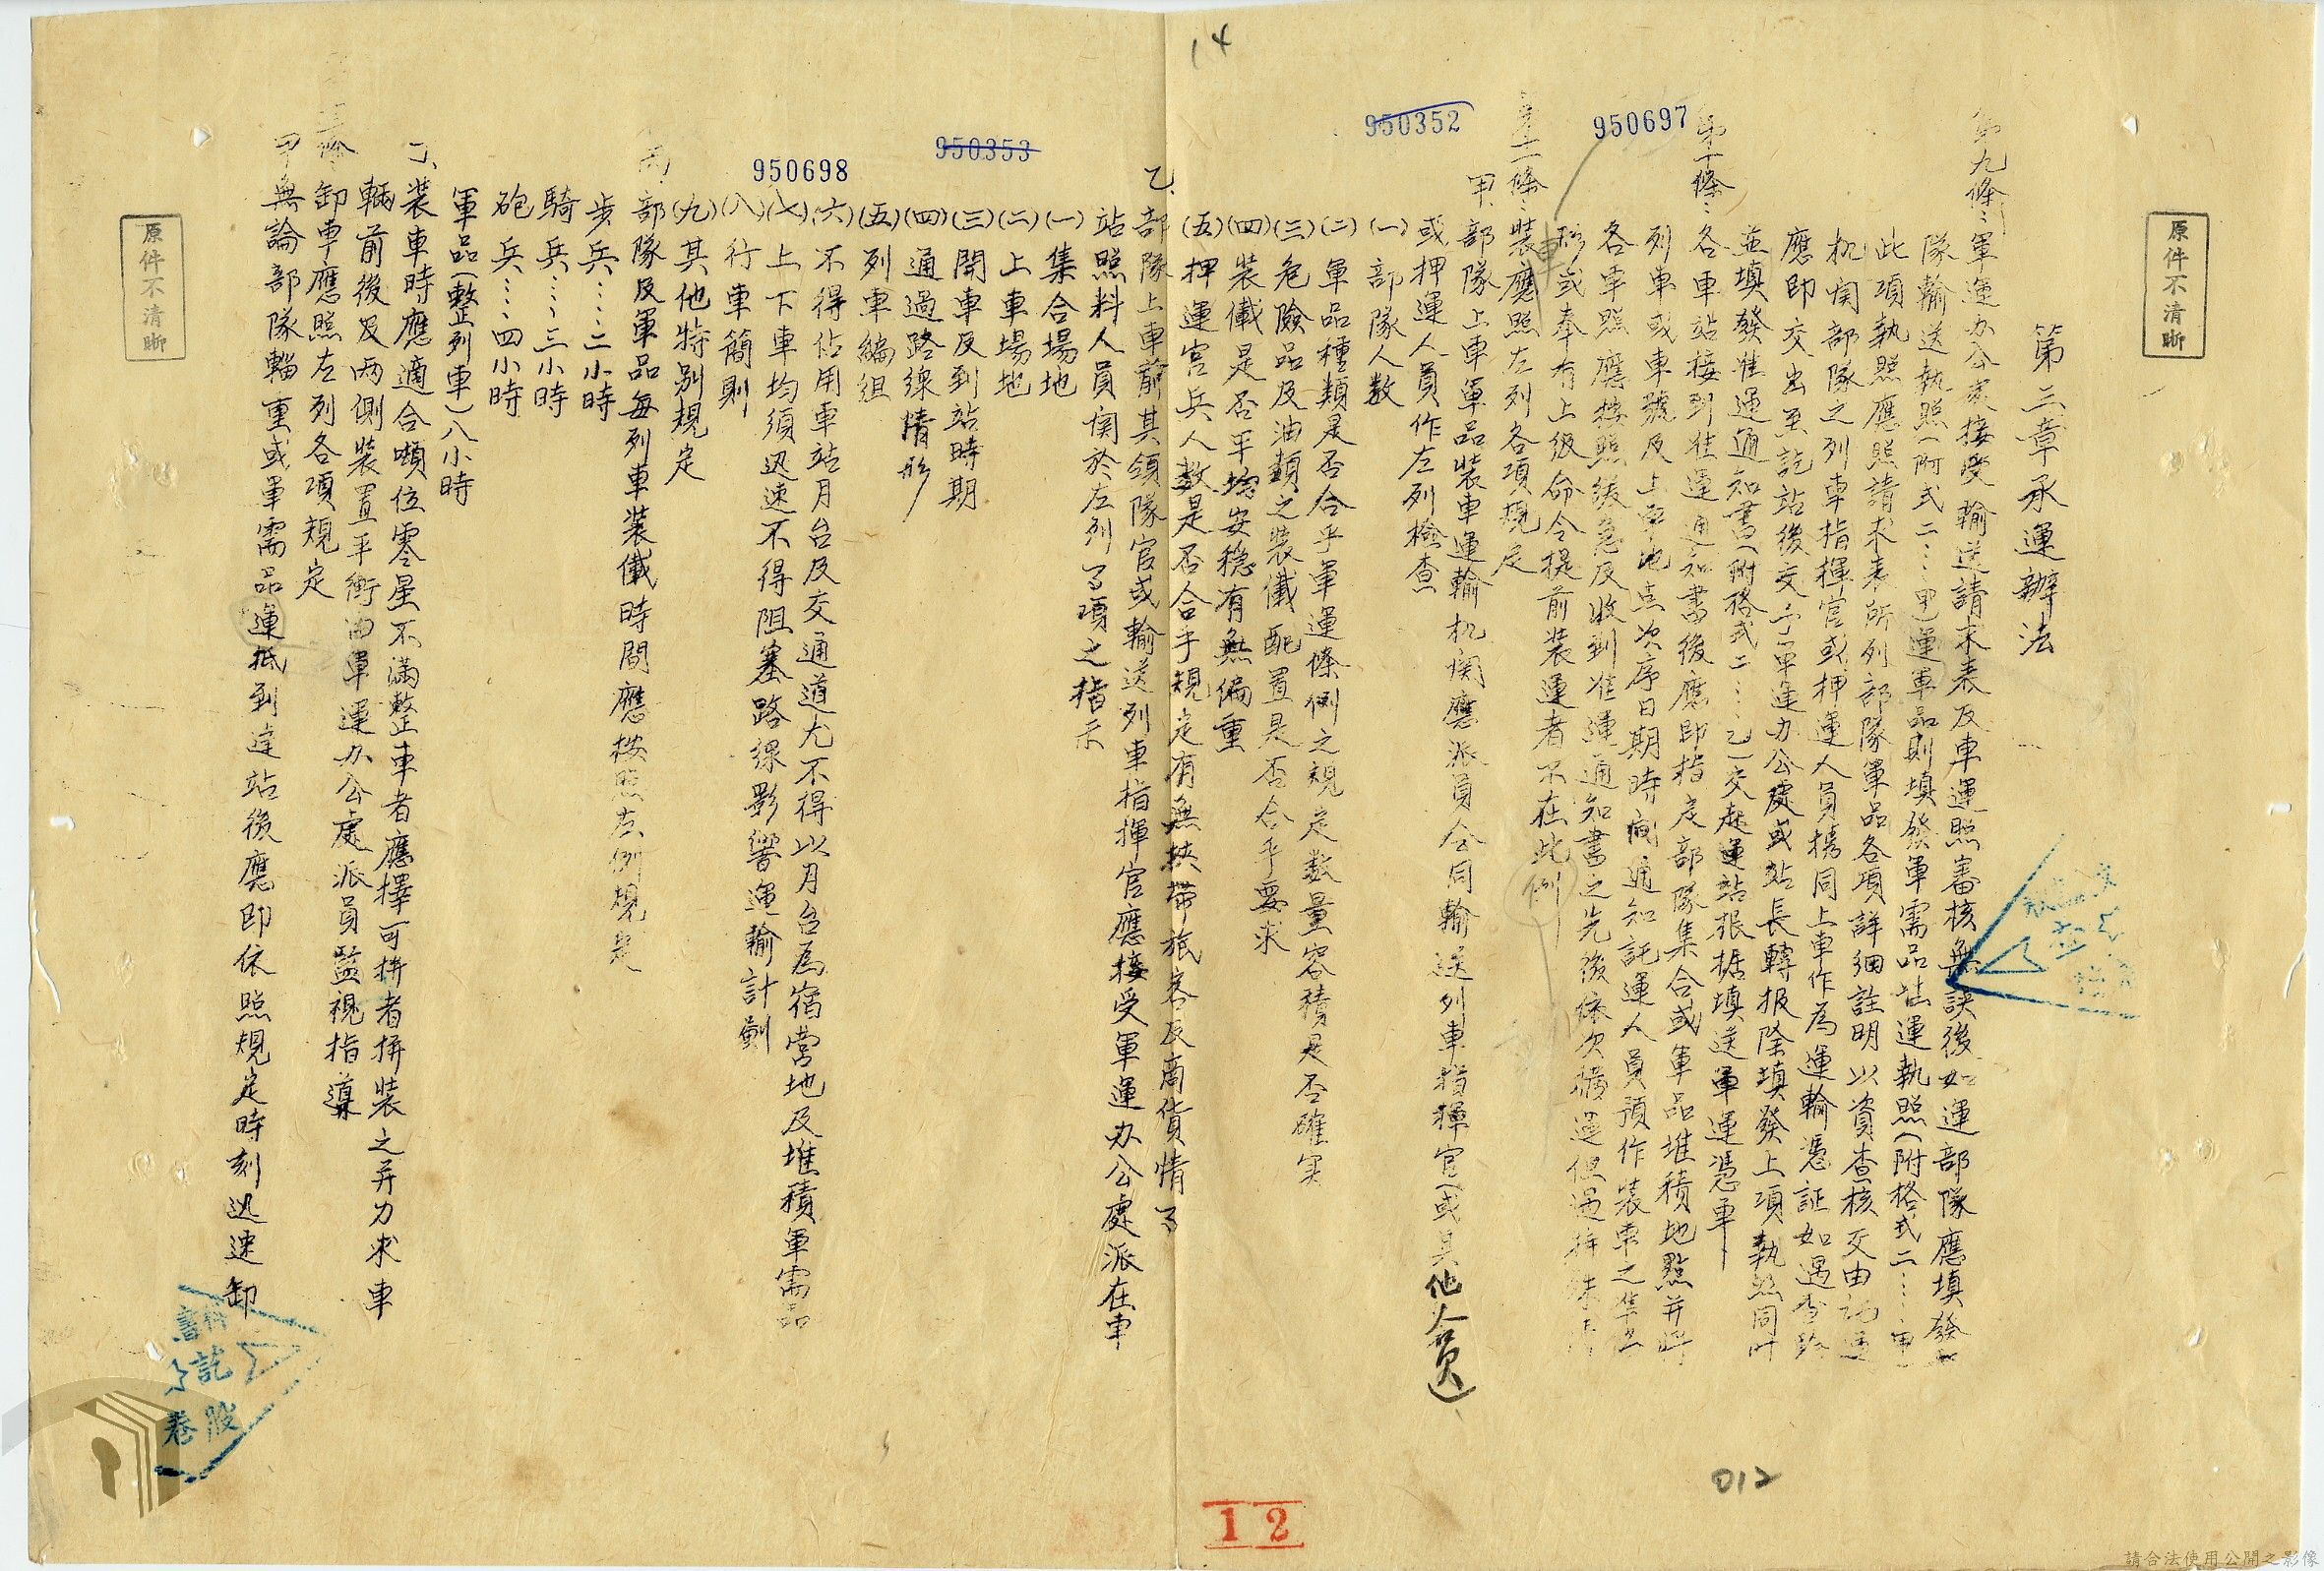 14
950697
950352
950353
950698
原件不清晰
第三章承運辦法
第九條：軍運办公處接受輸送請求表及車運照審核無誤後如運部隊應填發
隊輸送執照（附式二：甲）運軍品則填發軍需品址運執照（附格式二：甲
此項執照應照請求表所列部隊軍品各項詳細註明以資查核交由
机関部隊之列車指揮官或押運人員携同上車作為運輸憑証如遇查
應即交出至訖站後交予軍運办公處或站長轉报除填發上項執照同时
並填發准運通知書（附格式二：乙）交起運站根据填送軍運憑車
第十條：各車站接到准運通知書後應即指定部隊集合或軍品堆積地點并將
列車或車號及上車地点次序日期時间通知託運人員預作裝車之準备
各車站應按照緩急及收到准運通知書之先後依次撥運但遇特殊情
形或奉有上级命令提前裝運者不在此例
第十一條：裝車應照左列各項規定
甲、部隊上車軍品裝車運輸机関應派員会同輸送列車指揮官（或其他人員）
或押運人員作左列檢查
(一)部隊人数
(二)軍品種類是否合乎軍運條例之規定数量容積是否確实
(三)危險品及油類之裝儎配置是否合乎要求
(四)裝儎是否平均安稳有無偏重
(五)押運官兵人数是否合乎規定有無挾帶旅客及商貨情事
乙、部隊上車前其領隊官或輸送列車指揮官應接受軍運办公處派在車
站照料人員関於左列事項之指示
(一)集合場地
(二)上車場地
(三)開車及到站時期
(四)通過路線情形
(五)列車編组
(六)不得佔用車站月台及交通道尤不得以月台為宿营地及堆積軍需品
(七)上下車均須迅速不得阻塞路線影響運輸計劃
(八)行車簡則
(九)其他特别規定
丙、部隊及軍品每列車裝儎時間應按照左例規定
步兵……二小時
騎兵……三小時
砲兵……四小時
軍品（整列車）八小時
丁、裝車時應適合噸位零星不滿整車者應擇可拼者拼裝之并力求車
輛前後及两側裝置平衡由軍運办公處派員監視指導
條卸車應照左列各項規定
甲無論部隊輜重或軍需品運抵到達站後應即依照規定時刻迅速卸
原件不清晰
012
12
請合法使用公開之影像